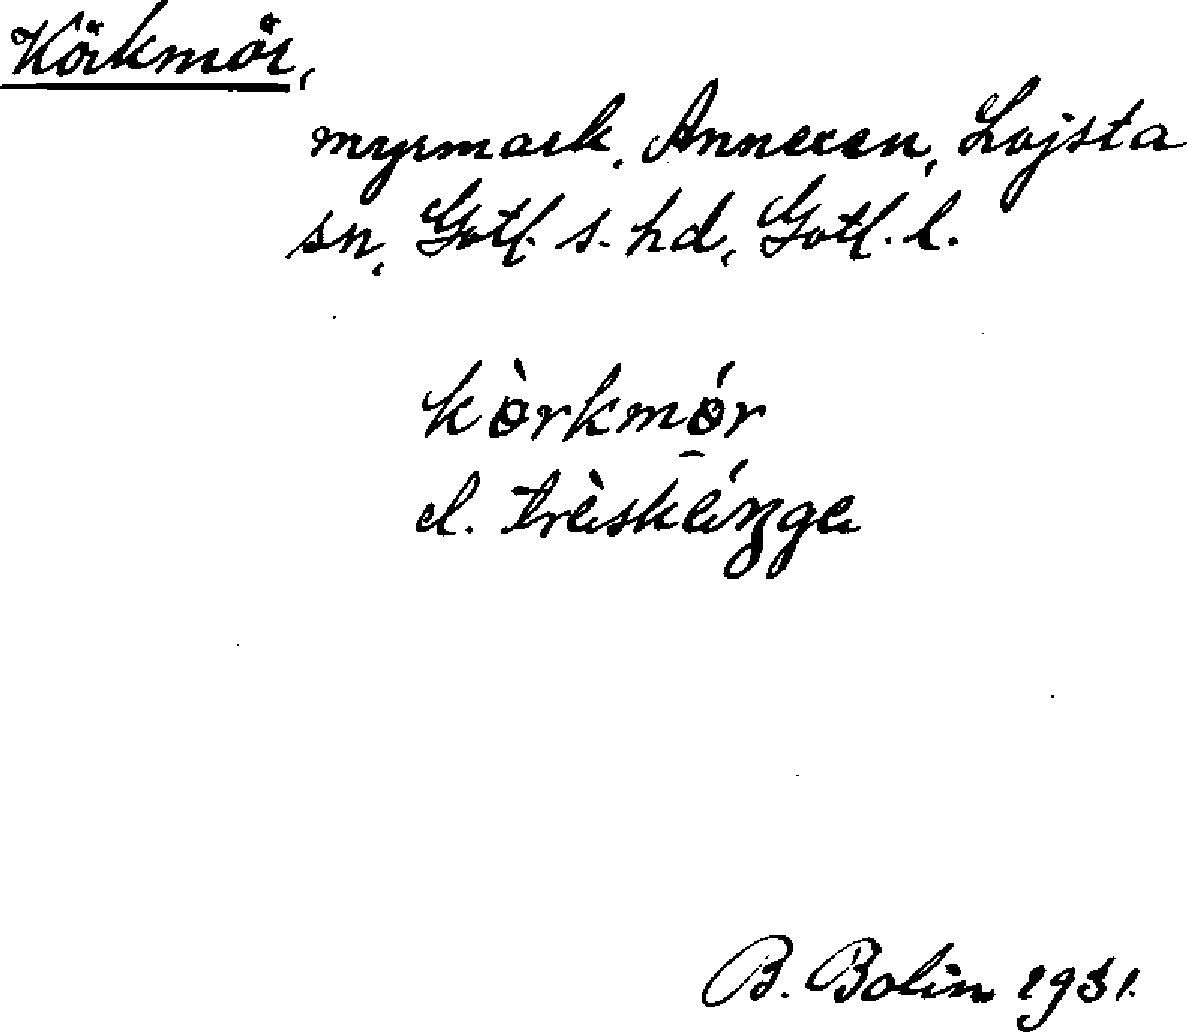 Körkmör,
myrmark, Annexen, Lojsta
sn, Gotl. s. hd, Gotl. l.
kòrkmór
el. träskängar
B. Bolin 1931.